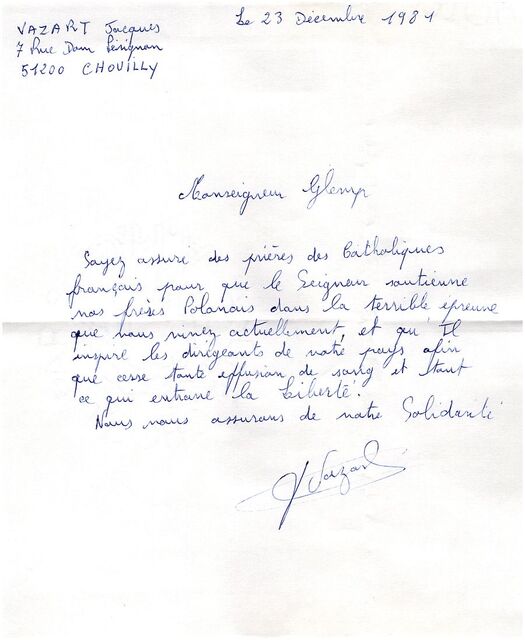 VAZART Jacques
Le 23 Décembre 1981
7 Rue Dom Pérignon
51200 CHOUILLY
Monseigneur Glemp
Soyez assuré des prières des Catholiques
français pour que le Seigneur soutienne
nos frères Polonais dans la terrible épreuve
que vous vivez actuellement, et qu'Il
inspire les dirigeants de votre pays afin
que cesse toute effusion de sang et tout
ce qui entrave la Liberté.
Nous vous assurons de notre Solidarité
J Vazart